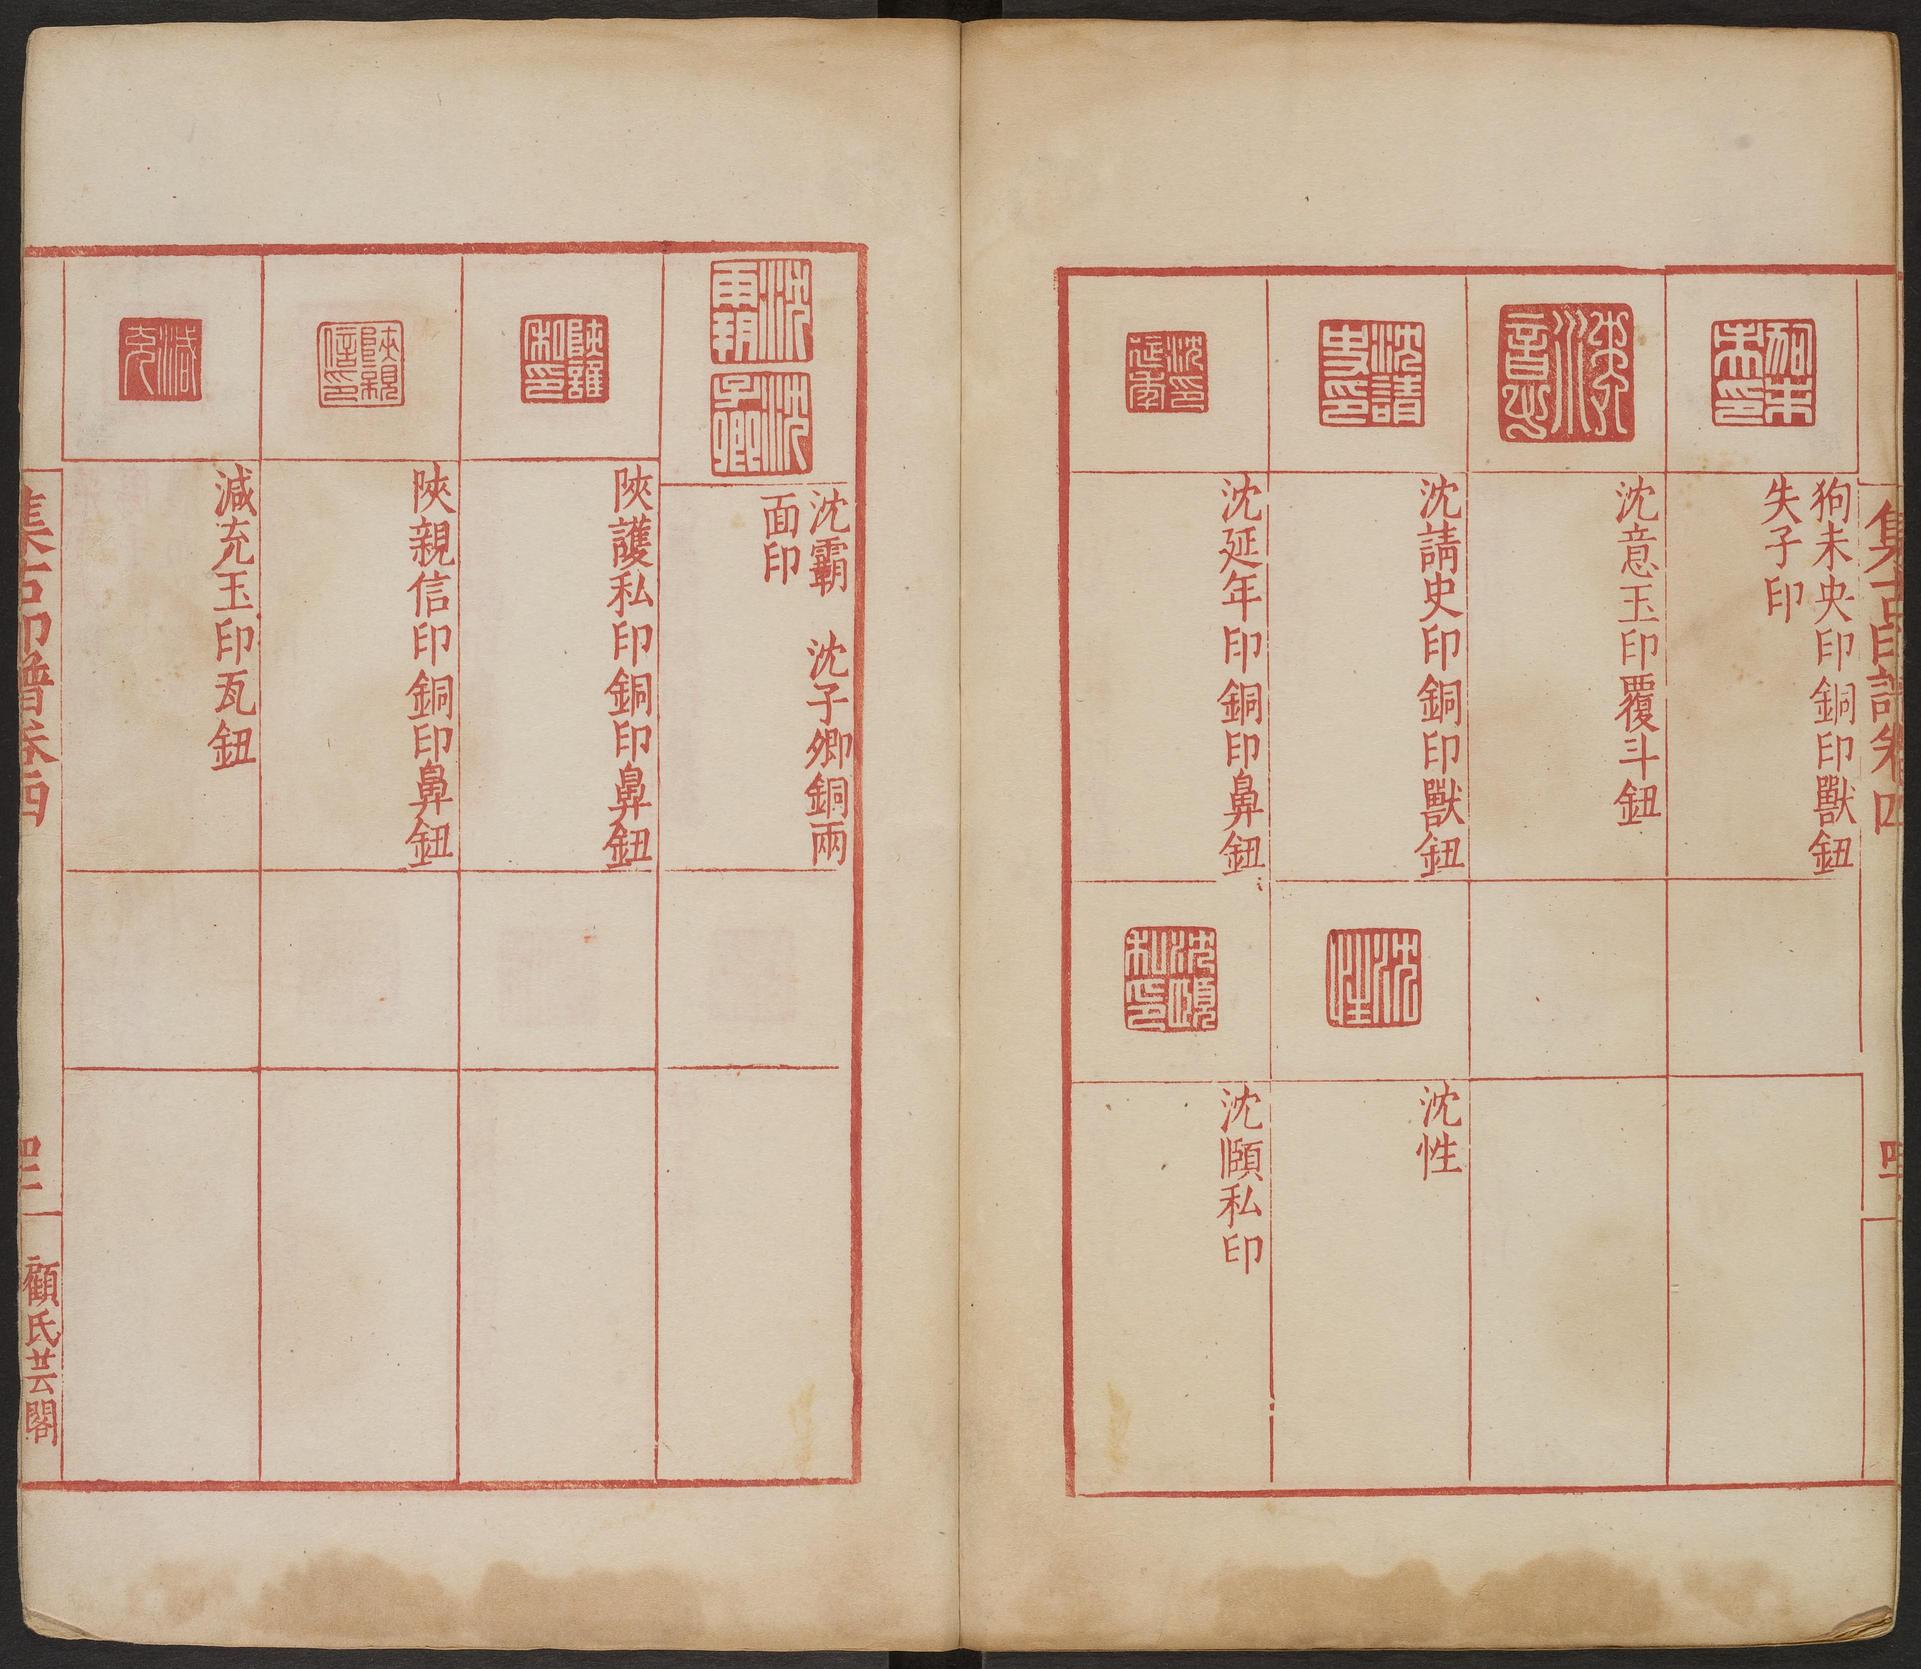 集古印譜卷四
狗未央印銅印獸鈕
失子印
沈意玉印覆斗鈕
沈請史印銅印獸鈕
沈性
沈延年印銅印鼻鈕
沈頤私印
沈霸 沈子卿銅兩
面印
陝護私印銅印鼻鈕
陝親信印銅印鼻鈕
減充玉印瓦鈕
集古印譜卷四
顧氏芸閣